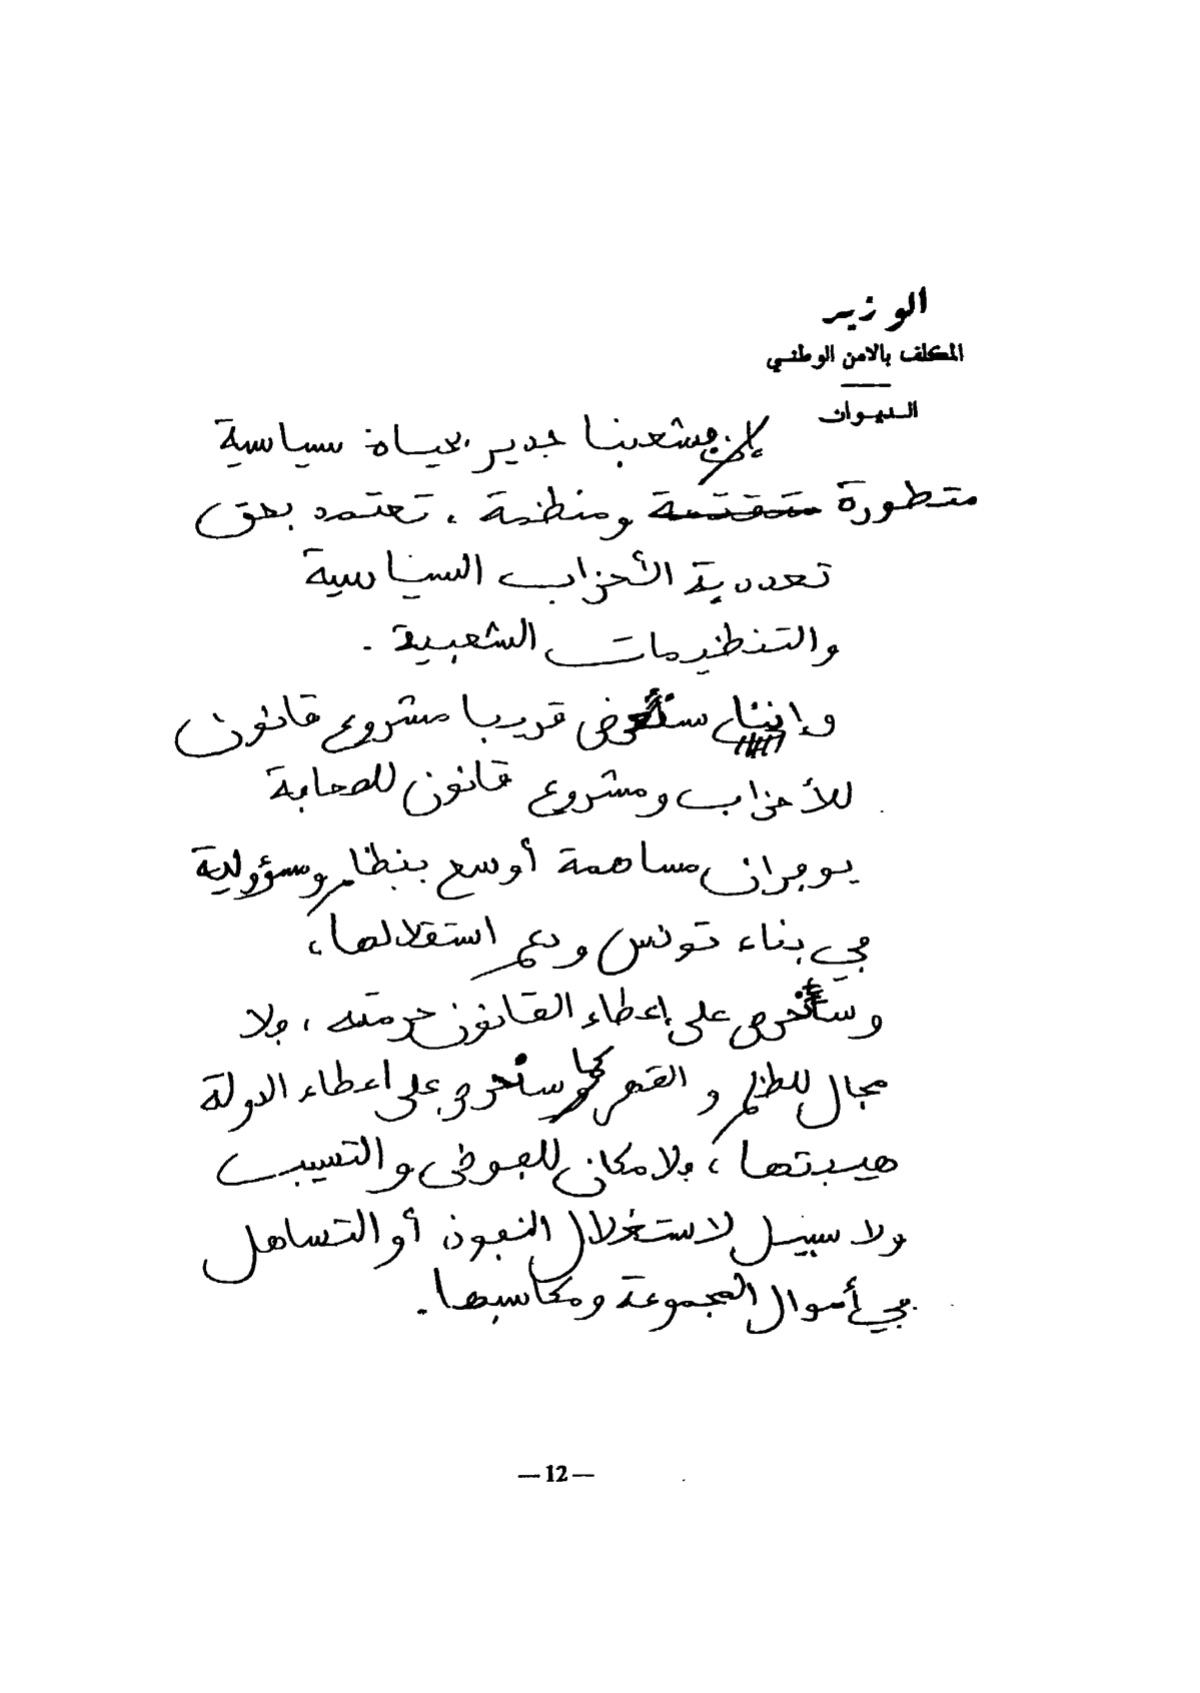 الوزير
المكلف بالامن الوطني
الديوان
إن شعبنا جدير بحياة سياسية
متطورة متقدمة ومنظمة، تعتمد بحق
تعددية الأحزاب السياسية
والتنظيمات الشعبية.
وإننا سنعرض قريبا مشروع قانون
للأحزاب ومشروع قانون للصحافة
يوفران مساهمة أوسع بنظام ومسؤولية
في بناء تونس ودعم استقلالها،
وسنحرص على إعطاء القانون حرمته، فلا
مجال للظلم و القهر كما سنحرص على اعطاء الدولة
هيبتها، فلا مكان للفوضى والتسيب
ولا سبيل لاستغلال النفوذ أو التساهل
في أموال المجموعة ومكاسبها.
—12—